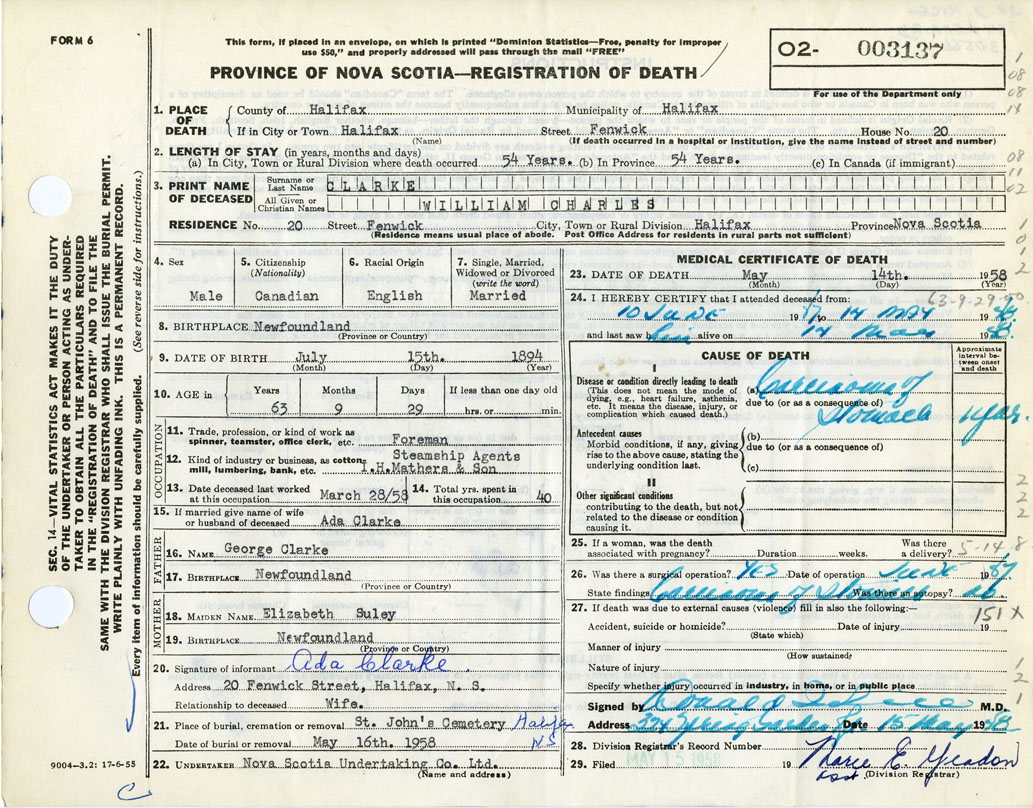 FORM 6
This form, if placed in an envelope, on which is printed "Dominion Statistics—Free, penalty for improper
use $50," and properly addressed will pass through the mail "FREE"
PROVINCE OF NOVA SCOTIA—REGISTRATION OF DEATH
02- 003137
For use of the Department only
SEC. 14—VITAL STATISTICS ACT MAKES IT THE DUTY
OF THE UNDERTAKER OR PERSON ACTING AS UNDER-
TAKER TO OBTAIN ALL THE PARTICULARS REQUIRED
IN THE "REGISTRATION OF DEATH" AND TO FILE THE
SAME WITH THE DIVISION REGISTRAR WHO SHALL ISSUE THE BURIAL PERMIT.
WRITE PLAINLY WITH UNFADING INK. THIS IS A PERMANENT RECORD.
Every item of information should be carefully supplied. (See reverse side for instructions.)
1. PLACE OF DEATH
County of Halifax Municipality of Halifax
If in City or Town Halifax Street Fenwick House No. 20
(Name) (If death occurred in a hospital or institution, give the name instead of street and number)
2. LENGTH OF STAY (in years, months and days)
(a) In City, Town or Rural Division where death occurred 54 Years. (b) In Province 54 Years. (c) In Canada (if immigrant)
3. PRINT NAME OF DECEASED
Surname or Last Name CLARKE
All Given or Christian Names WILLIAM CHARLES
RESIDENCE No. 20 Street Fenwick City, Town or Rural Division Halifax Province Nova Scotia
(Residence means usual place of abode. Post Office Address for residents in rural parts not sufficient)
4. Sex Male
5. Citizenship (Nationality) Canadian
6. Racial Origin English
7. Single, Married, Widowed or Divorced (write the word) Married
8. BIRTHPLACE Newfoundland
(Province or Country)
9. DATE OF BIRTH July 15th. 1894
(Month) (Day) (Year)
10. AGE in Years Months Days If less than one day old
63 9 29 hrs. or min.
OCCUPATION
11. Trade, profession, or kind of work as
spinner, teamster, office clerk, etc. Foreman
12. Kind of industry or business, as cotton
mill, lumbering, bank, etc. Steamship Agents
I.H.Mathers & Son
13. Date deceased last worked
at this occupation March 28/58
14. Total yrs. spent in
this occupation 40
15. If married give name of wife
or husband of deceased Ada Clarke
FATHER
16. NAME George Clarke
17. BIRTHPLACE Newfoundland
(Province or Country)
MOTHER
18. MAIDEN NAME Elizabeth Suley
19. BIRTHPLACE Newfoundland
(Province or Country)
20. Signature of informant Ada Clarke
Address 20 Fenwick Street, Halifax, N. S.
Relationship to deceased Wife.
21. Place of burial, cremation or removal St. John's Cemetery Halifax
N.S.
Date of burial or removal May 16th. 1958
22. UNDERTAKER Nova Scotia Undertaking Co. Ltd.
(Name and address)
9004-3.2: 17-6-55
MEDICAL CERTIFICATE OF DEATH
23. DATE OF DEATH May 14th. 1958
(Month) (Day) (Year)
63-9-29-90
24. I HEREBY CERTIFY that I attended deceased from:
10 JUNE 1957 to 14 MAY 1958
and last saw him alive on 14 May 1958
CAUSE OF DEATH
Approximate interval between onset and death
I
Disease or condition directly leading to death
(This does not mean the mode of
dying, e.g., heart failure, asthenia,
etc. It means the disease, injury, or
complication which caused death.)
(a) Carcinoma of
due to (or as a consequence of) Stomach 1 year.
Antecedent causes
Morbid conditions, if any, giving
rise to the above cause, stating the
underlying condition last.
(b)
due to (or as a consequence of)
(c)
II
Other significant conditions
contributing to the death, but not
related to the disease or condition
causing it.
25. If a woman, was the death
associated with pregnancy? Duration weeks. Was there
a delivery?
5-14-8
26. Was there a surgical operation? YES Date of operation JUNE 1957
State findings Carcinoma of Stomach Was there an autopsy? no
27. If death was due to external causes (violence) fill in also the following:—
151 X
Accident, suicide or homicide? Date of injury 19
(State which)
Manner of injury
(How sustained)
Nature of injury
Specify whether injury occurred in industry, in home, or in public place
Signed by Donald M.D.
Address 324 Spring Garden Rd Date 15 May 1958
28. Division Registrar's Record Number
MAY 15 1958
29. Filed 19 Marie E. Yeadon
Asst. (Division Registrar)